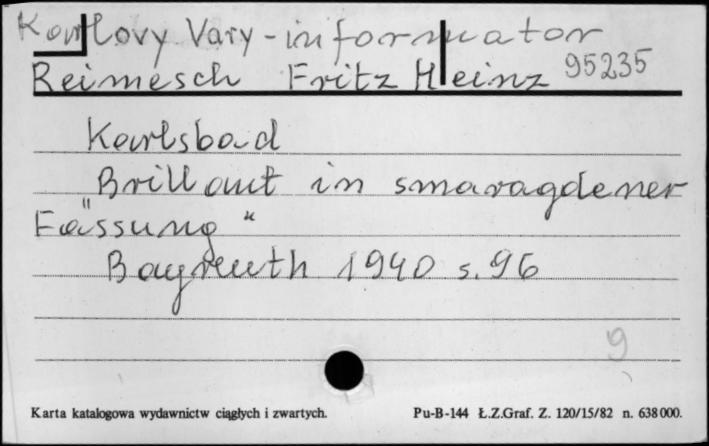 Karlovy Vary - informator
Reimesch Fritz Heinz 95235
Karlsbad
"Brillant in smaragdener
Fassung"
Bayreuth 1940 s. 96
9
Karta katalogowa wydawnictw ciągłych i zwartych. Pu-B-144 Ł.Z.Graf. Z. 120/15/82 n. 638000.